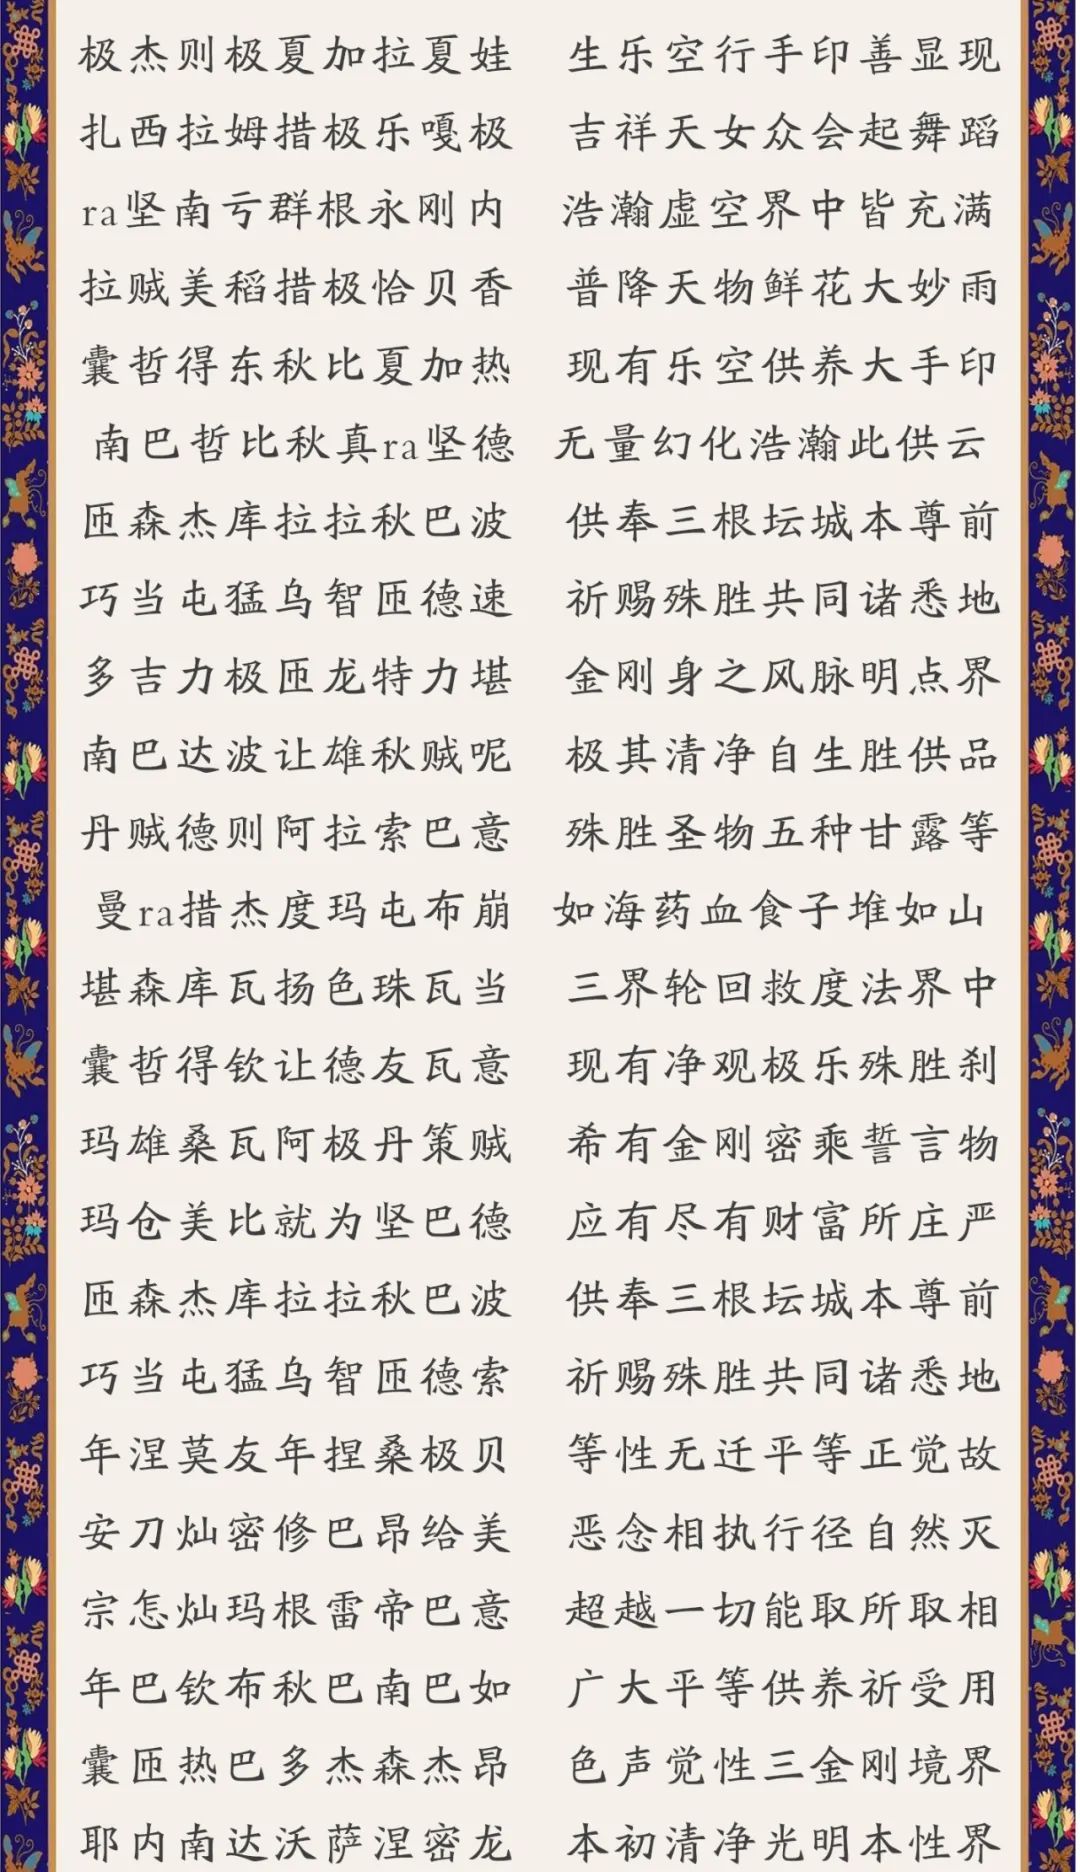 极杰则极夏加拉夏娃 生乐空行手印善显现
扎西拉姆措极乐嘎极 吉祥天女众会起舞蹈
ra坚南亏群根永刚内 浩瀚虚空界中皆充满
拉贼美稻措极恰贝香 普降天物鲜花大妙雨
囊哲得东秋比夏加热 现有乐空供养大手印
南巴哲比秋真ra坚德 无量幻化浩瀚此供云
匝森杰库拉拉秋巴波 供奉三根坛城本尊前
巧当屯猛乌智匝德速 祈赐殊胜共同诸悉地
多吉力极匝龙特力堪 金刚身之风脉明点界
南巴达波让雄秋贼呢 极其清净自生胜供品
丹贼德则阿拉索巴意 殊胜圣物五种甘露等
曼ra措杰度玛屯布崩 如海药血食子堆如山
堪森库瓦扬色珠瓦当 三界轮回救度法界中
囊哲得钦让德友瓦意 现有净观极乐殊胜刹
玛雄桑瓦阿极丹策贼 希有金刚密乘誓言物
玛仓美比就为坚巴德 应有尽有财富所庄严
匝森杰库拉拉秋巴波 供奉三根坛城本尊前
巧当屯猛乌智匝德索 祈赐殊胜共同诸悉地
年涅莫友年捏桑极贝 等性无迁平等正觉故
安刀灿密修巴昂给美 恶念相执行径自然灭
宗怎灿玛根雷帝巴意 超越一切能取所取相
年巴钦布秋巴南巴如 广大平等供养祈受用
囊匝热巴多杰森杰昂 色声觉性三金刚境界
耶内南达沃萨涅密龙 本初清净光明本性界